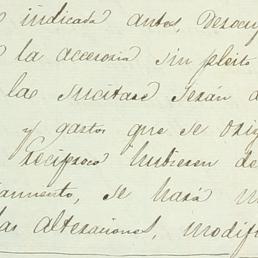 indicada antes, desocup
la accesoria sin pleito
las suscitare serán d
y gastos que se orig
recíproco hubieren de
amiento, se hará
las alteraciones, modifi